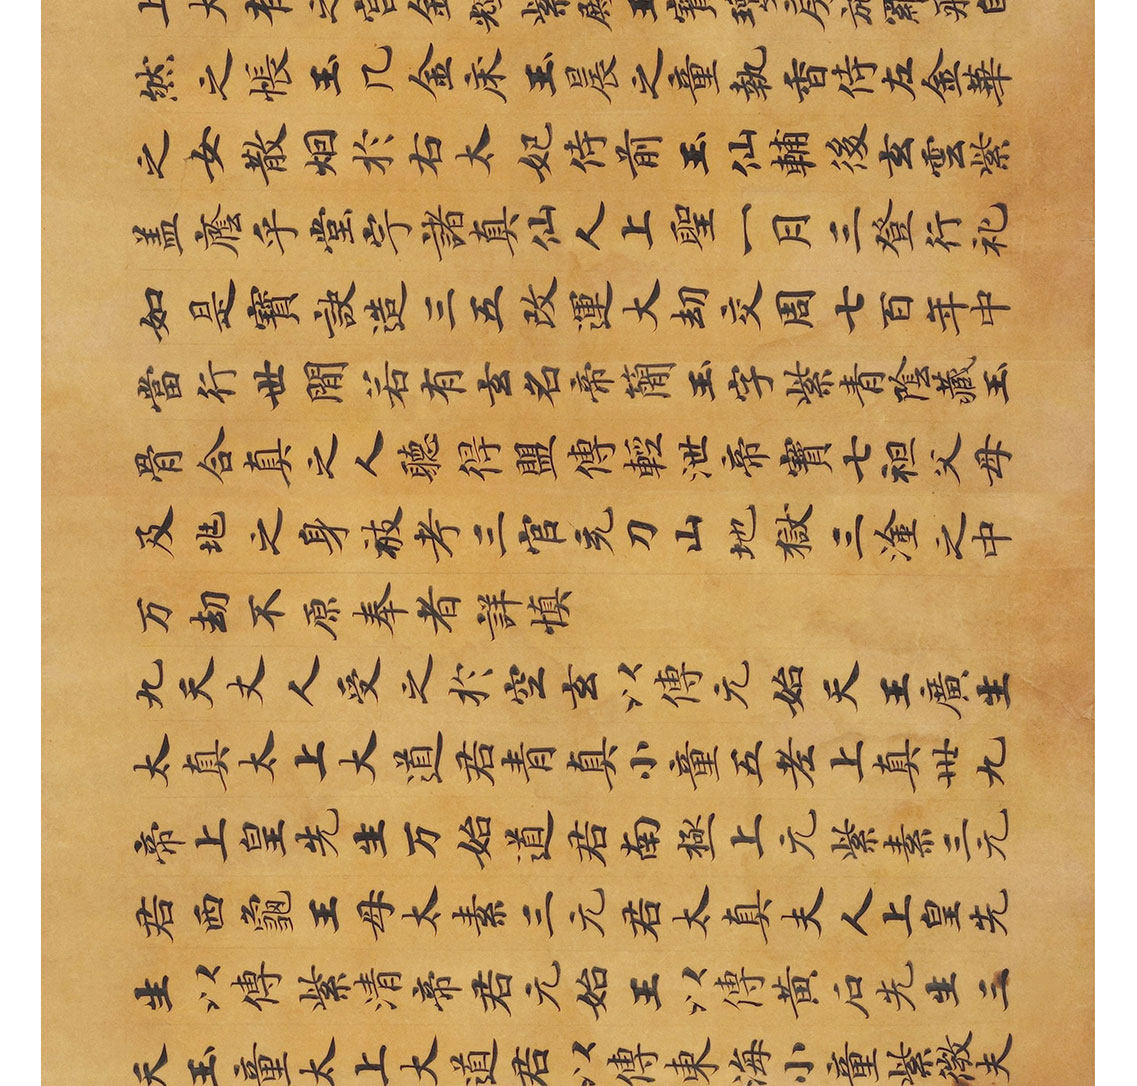 之宮金紫玉寶自
然之帳玉几金床玉晨之童執香侍左金華
之女散烟於右太妃侍前玉仙輔後玄雲紫
盖廕乎堂宇諸真仙人上聖一月三登行礼
如是寶訣造三五改運大劫交周七百年中
當行世間若有玄名帝蕳玉字紫青陰藏玉
骨合真之人聽得盟傳輕泄帝寶七祖父母
及兆之身被考三官充刀山地獄三塗之中
万劫不原奉者詳慎
九天丈人受之於空玄以傳元始天王廣生
太真太上大道君青真小童五老上真卅九
帝上皇先生万始道君南極上元紫素三元
君西龜王母太素三元君太真夫人上皇先
生以傳紫清帝君元始王以傳黃石先生三
天玉童太上大道君以傳東海小童紫微夫